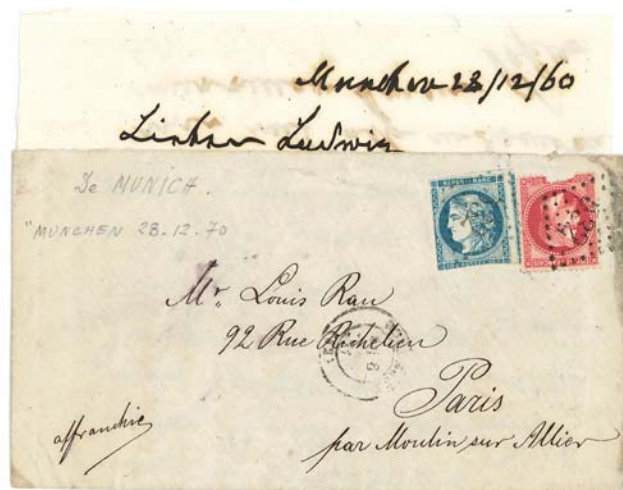 Munchen 28/12/60
Lieber Ludwig
De MUNICH.
"MUNCHEN 28.12.70
Mr. Louis Rau
92 Rue Richelieu
Paris
par Moulin sur Allier
affranchie